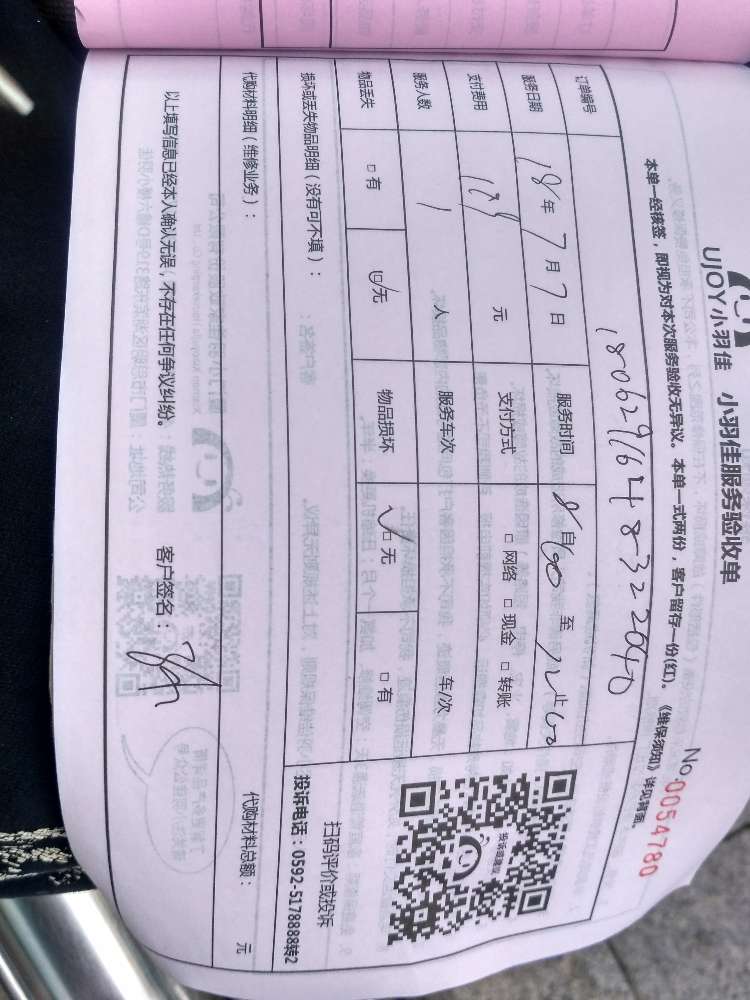 UJOY小羽佳 小羽佳服务验收单
No.0054780
本单一经核签，即视为对本次服务验收无异议。本单一式两份，客户留存一份(红)。《维保须知》详见背面。
订单编号 1806291648322040
服务日期 18年7月7日 服务时间 8自00至12点00
支付费用 128元 支付方式 □网络 □现金 □转账
服务人数 1人 服务车次 车/次
物品丢失 □有 ☑无 物品损坏 ☑无 □有
损坏或丢失物品明细（没有可不填）：
扫码评价或投诉
投诉电话：0592-5178888转2
代购材料明细（维修业务）：
代购材料总额： 元
以上填写信息已经本人确认无误，不存在任何争议纠纷。 客户签名：